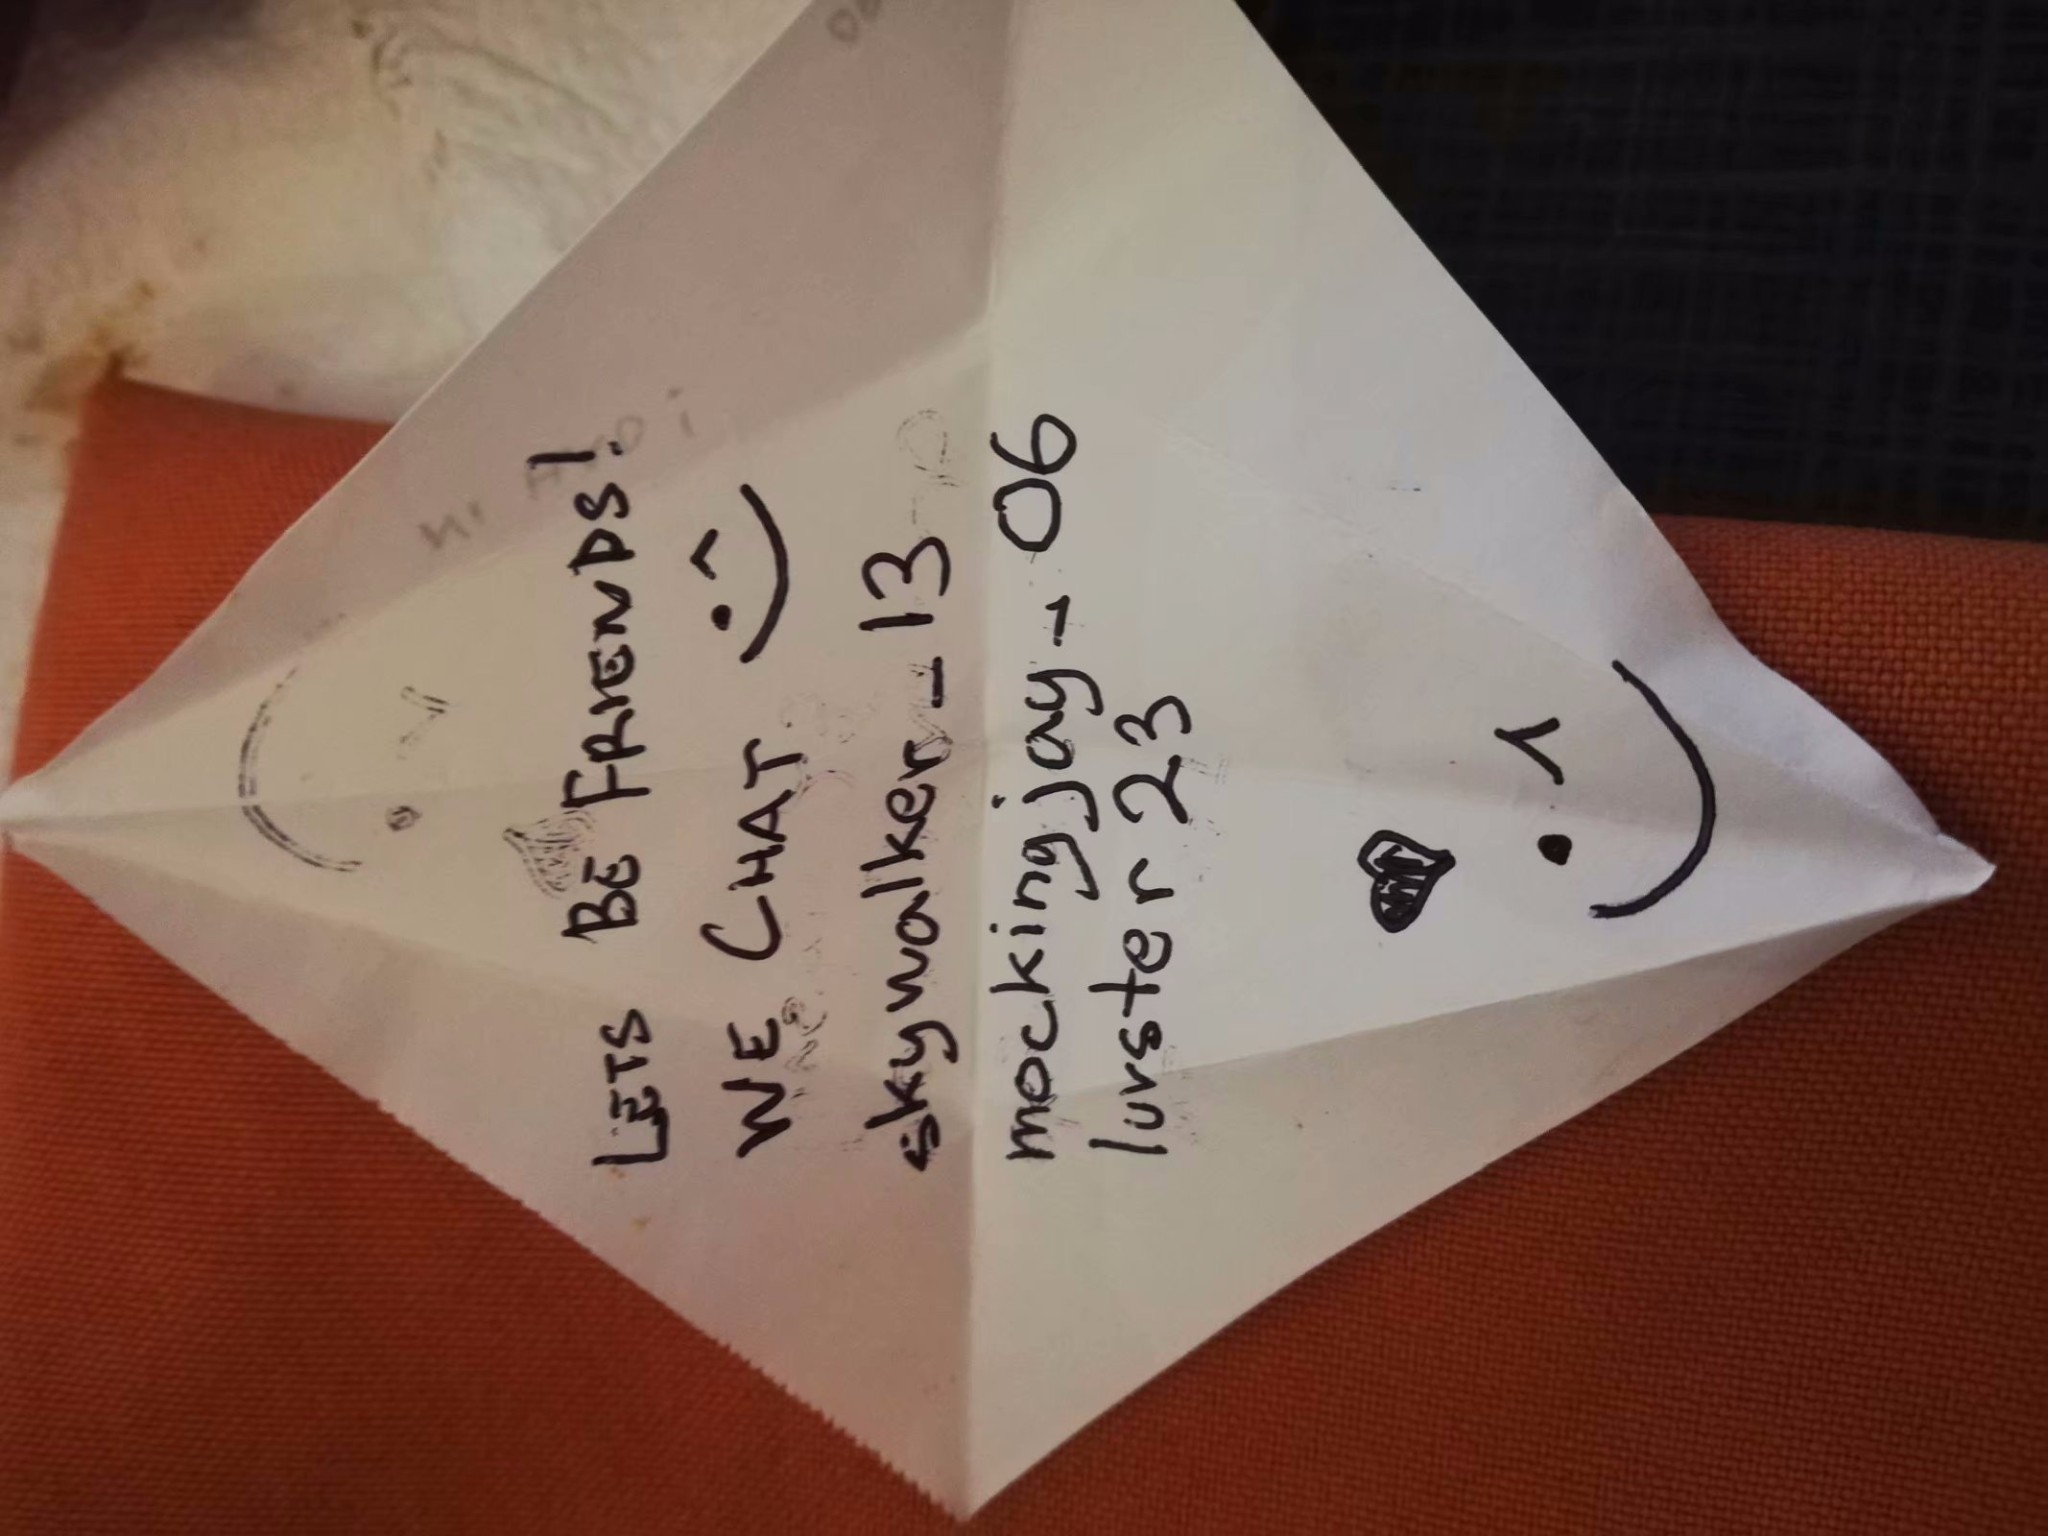 LETS BE FRIENDS!
WE CHAT
skywalker_13
mockingjay_06
lurster23